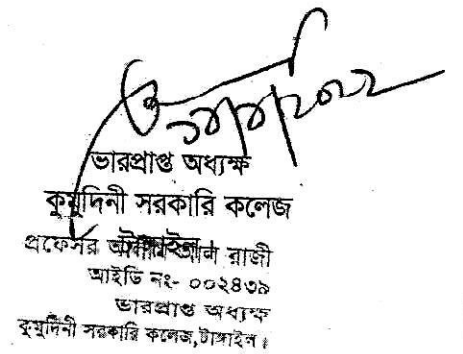 ১৮/৮/২০২২
ভারপ্রাপ্ত অধ্যক্ষ
কুমুদিনী সরকারি কলেজ
টাঙ্গাইল।
প্রফেসর আল রাজী
আইডি নং- ০০২৪৩৯
ভারপ্রাপ্ত অধ্যক্ষ
কুমুদিনী সরকারি কলেজ,টাঙ্গাইল।